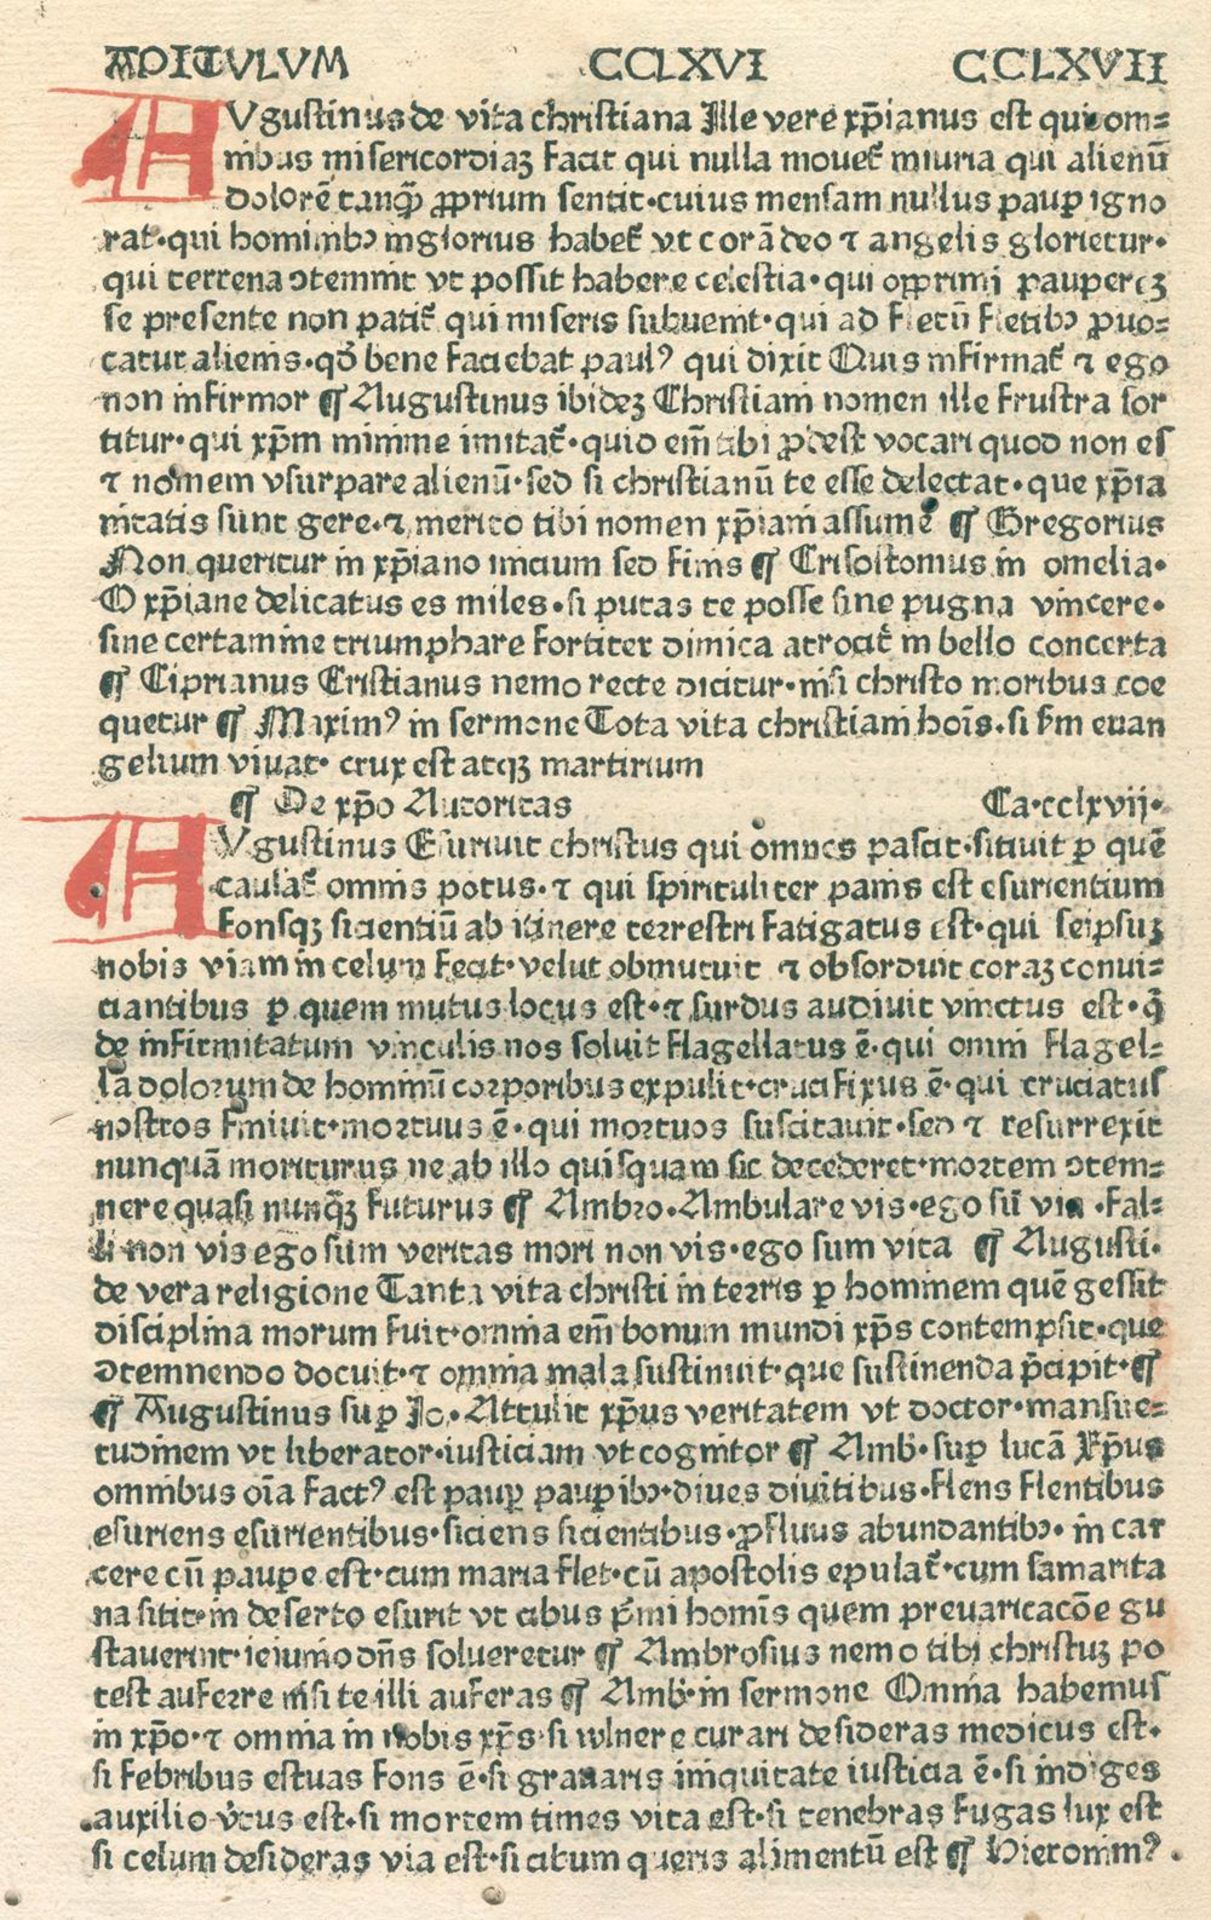 CAPITULUM CCLXVI CCLXVII
AVgustinus de vita christiana Ille vere xp̄ianus est qui om=
nibus misericordiaꝫ facit qui nulla mouet᷑ iniuria qui alienū
dolorē tanqꝫ ꝓprium sentit·cuius mensam nullus pauꝑ igno
rat·qui hominibꝰ inglorius habet᷑ vt corā deo ⁊ angelis glorietur·
qui terrena ꝯtemnit vt possit habere celestia·qui opprimi paupereꝫ
se presente non patit᷑ qui miseris subuenit·qui ad fletū fletibꝰ ꝓuo=
catur alienis·qđ bene faciebat paulꝰ qui dixit Quis infirmat᷑ ⁊ ego
non infirmor ¶ Augustinus ibideꝫ Christiani nomen ille frustra sor
titur·qui xp̄m minime imitat᷑·quid em̄ tibi ꝓdest vocari quod non es
⁊ nomem vsurpare alienū·sed si christianū te esse delectat·que xp̄ia
nitatis sunt gere·⁊ merito tibi nomen xp̄iani assume ¶ Gregorius
Non queritur in xp̄iano inicium sed finis ¶ Crisostomus in omelia·
O xp̄iane delicatus es miles·si putas te posse sine pugna vincere·
sine certamine triumphare fortiter dimica atrocit᷑ in bello concerta
¶ Ciprianus Cristianus nemo recte dicitur·nisi christo moribus coe
quetur ¶ Maximꝰ in sermone Tota vita christiani hoīs·si s̄m euan
gelium viuat· crux est atqꝫ martirium
¶ De xp̄o Autoritas Ca·cclxvij·
AVgustinus Esuriuit christus qui omnes pascit·sitiuit ꝑ quē
caulat᷑ omnis potus·⁊ qui spirituliter panis est esurientium
fonsqꝫ sicientiū ab itinere terrestri fatigatus est·qui seipsuꝫ
nobis viam in celum fecit·velut obmutuit ⁊ obsorduit coraꝫ conui=
ciantibus ꝑ quem mutus locus est·⁊ surdus audiuit vinctus est·q̄
de infirmitatum vinculis nos soluit flagellatus ē·qui omni flagel=
la dolorum de hominū corporibus expulit·crucifixus ē·qui cruciatus
nostros finiuit·mortuus ē·qui mortuos suscitauit·sed ⁊ resurrexit
nunquā moriturus ne ab illo quisquam sic decederet·mortem ꝯtem=
nere quasi nunqꝫ futurus ¶ Ambro·Ambulare vis·ego sū via·fal=
li non vis ego sum veritas mori non vis·ego sum vita ¶ Augusti·
de vera religione Tanta vita christi in terris ꝑ hominem quē gessit
disciplina morum fuit·omnia em̄ bonum mundi xp̄s contempsit·que
ꝯtemnendo docuit·⁊ omnia mala sustinuit·que sustinenda p̄cipit·¶
¶ Augustinus suꝑ Io·Attulit xp̄us veritatem vt doctor·mansue=
tudinem vt liberator·iusticiam vt cognitor ¶ Amb·suꝑ lucā Xp̄us
omnibus oīa factꝰ est pauꝑ pauꝑibꝰ·diues diuitibus·flens flentibus
esuriens esurientibus·siciens sicientibus·ꝓfluus abundantibꝰ·in car
cere cū pauꝑe est·cum maria flet·cū apostolis epulat᷑·cum samarita
na sitit·in deserto esurit vt cibus p̄mi homīs quem preuaricacōe gu
stauerint·ieiunio dn̄s solueretur ¶ Ambrosius nemo tibi christuꝫ po
test auferre nisi te illi auferas ¶ Amb·in sermone Omnia habemus
in xp̄o·⁊ omnia in nobis xp̄s·si vulnere curari desideras medicus est·
si febribus estuas fons ē·si grauaris iniquitate iusticia ē·si indiges
auxilio v̄tus est·si mortem times vita est·si tenebras fugas lux est
si celum desideras via est·si cibum queris alimentū est ¶ Hieronimꝰ·